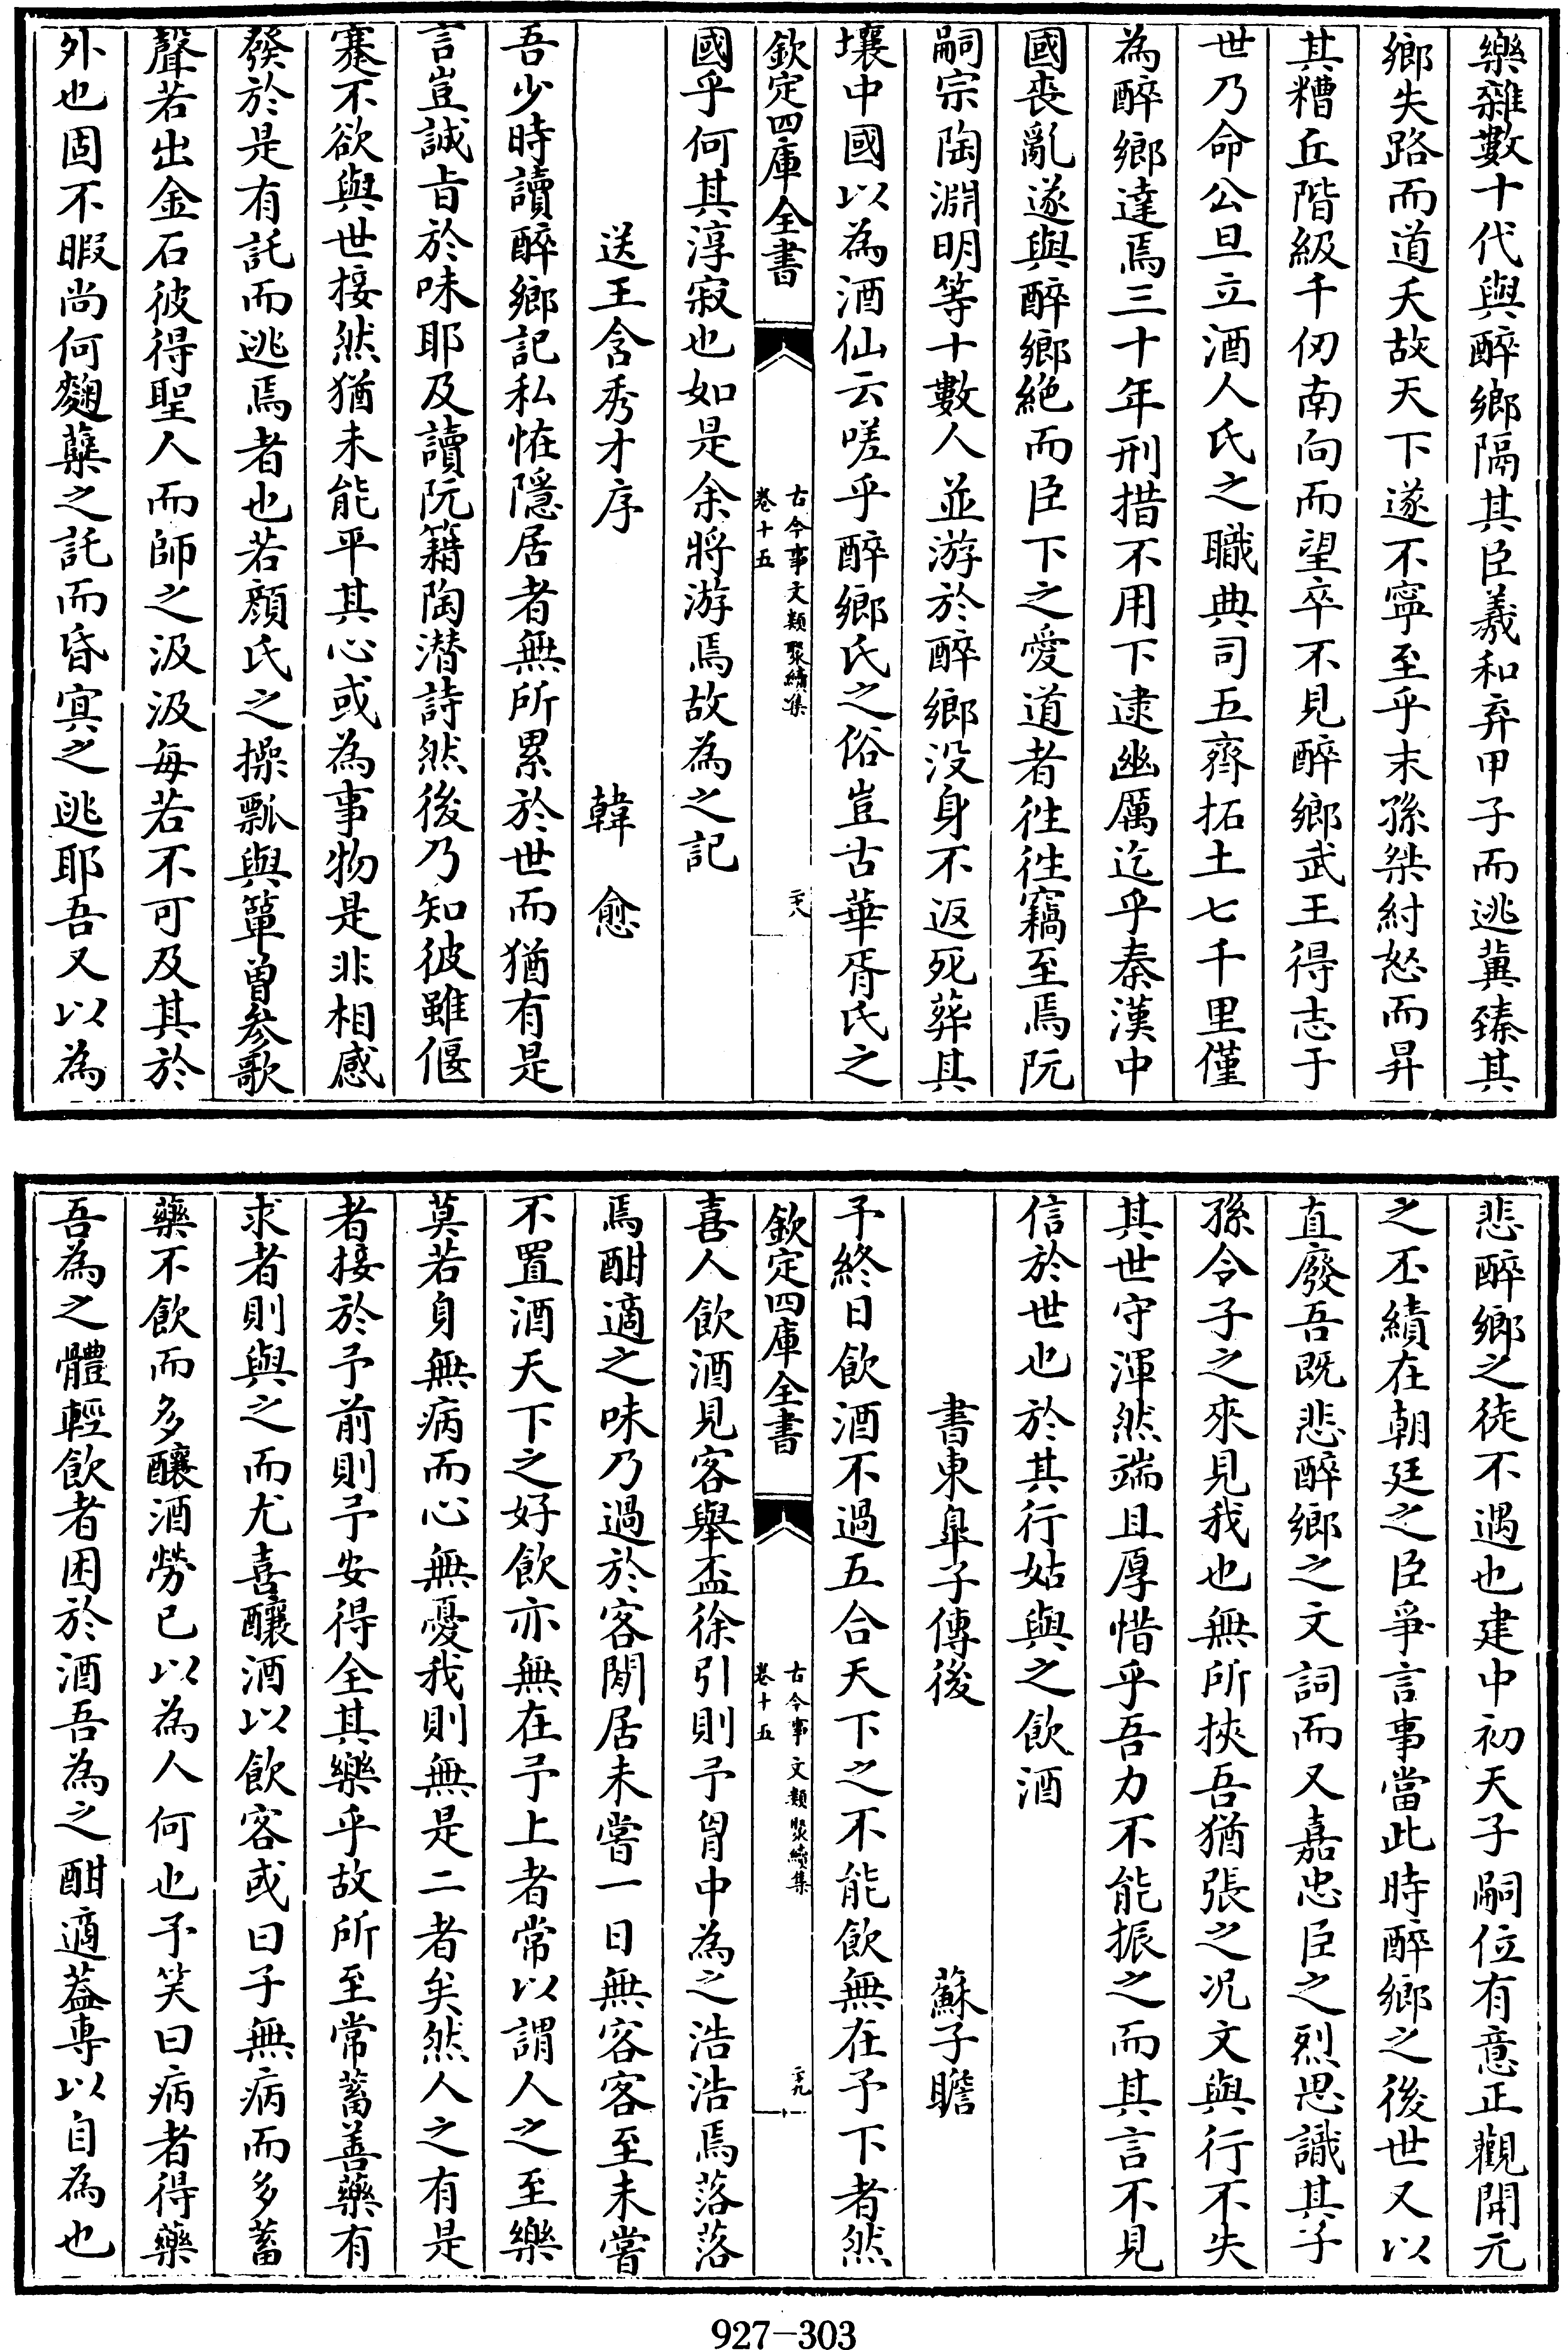 樂雜數十代與醉鄉隔其臣羲和弃甲子而逃冀臻其
鄉失路而道夭故天下遂不寧至乎末孫桀紂怒而昇
其糟丘階級千仞南向而望卒不見醉鄉武王得志于
世乃命公旦立酒人氏之職典司五齊拓土七千里僅
為醉鄉達焉三十年刑措不用下逮幽厲迄乎秦漢中
國喪亂遂與醉鄉絶而臣下之愛道者徃徃竊至焉阮
嗣宗陶淵明等十數人並游於醉鄉没身不返死葬其
壤中國以為酒仙云嗟乎醉鄉氏之俗豈古華胥氏之
欽定四庫全書
古今事文類聚續集
卷十五
二十八
國乎何其淳寂也如是余將游焉故為之記
送王含秀才序 韓愈
吾少時讀醉鄉記私恠隱居者無所累於世而猶有是
言豈誠㫖於味耶及讀阮籍陶潜詩然後乃知彼雖偃
蹇不欲與世接然猶未能平其心或為事物是非相感
發於是有託而逃焉者也若顔氏之操瓢與簞曾參歌
聲若出金石彼得聖人而師之汲汲每若不可及其於
外也固不暇尚何麴糵之託而昏㝠之逃耶吾又以為
悲醉鄉之徒不遇也建中初天子嗣位有意正觀開元
之丕績在朝廷之臣爭言事當此時醉鄉之後世又以
直廢吾既悲醉鄉之文詞而又嘉忠臣之烈思識其子
孫令子之來見我也無所挾吾猶張之况文與行不失
其世守渾然端且厚惜乎吾力不能振之而其言不見
信於世也於其行姑與之飲酒
書東臯子傳後 蘇子瞻
予終日飲酒不過五合天下之不能飲無在予下者然
欽定四庫全書
古今事文類聚續集
卷十五
二十九
喜人飲酒見客舉盃徐引則予胷中為之浩浩焉落落
焉酣適之味乃過於客閒居未嘗一日無客客至未嘗
不置酒天下之好飲亦無在予上者常以謂人之至樂
莫若身無病而心無憂我則無是二者矣然人之有是
者接於予前則予安得全其樂乎故所至常蓄善藥有
求者則與之而尤喜釀酒以飲客或曰子無病而多蓄
藥不飲而多釀酒勞已以為人何也予笑曰病者得藥
吾為之體輕飲者困於酒吾為之酣適葢専以自為也
927—303